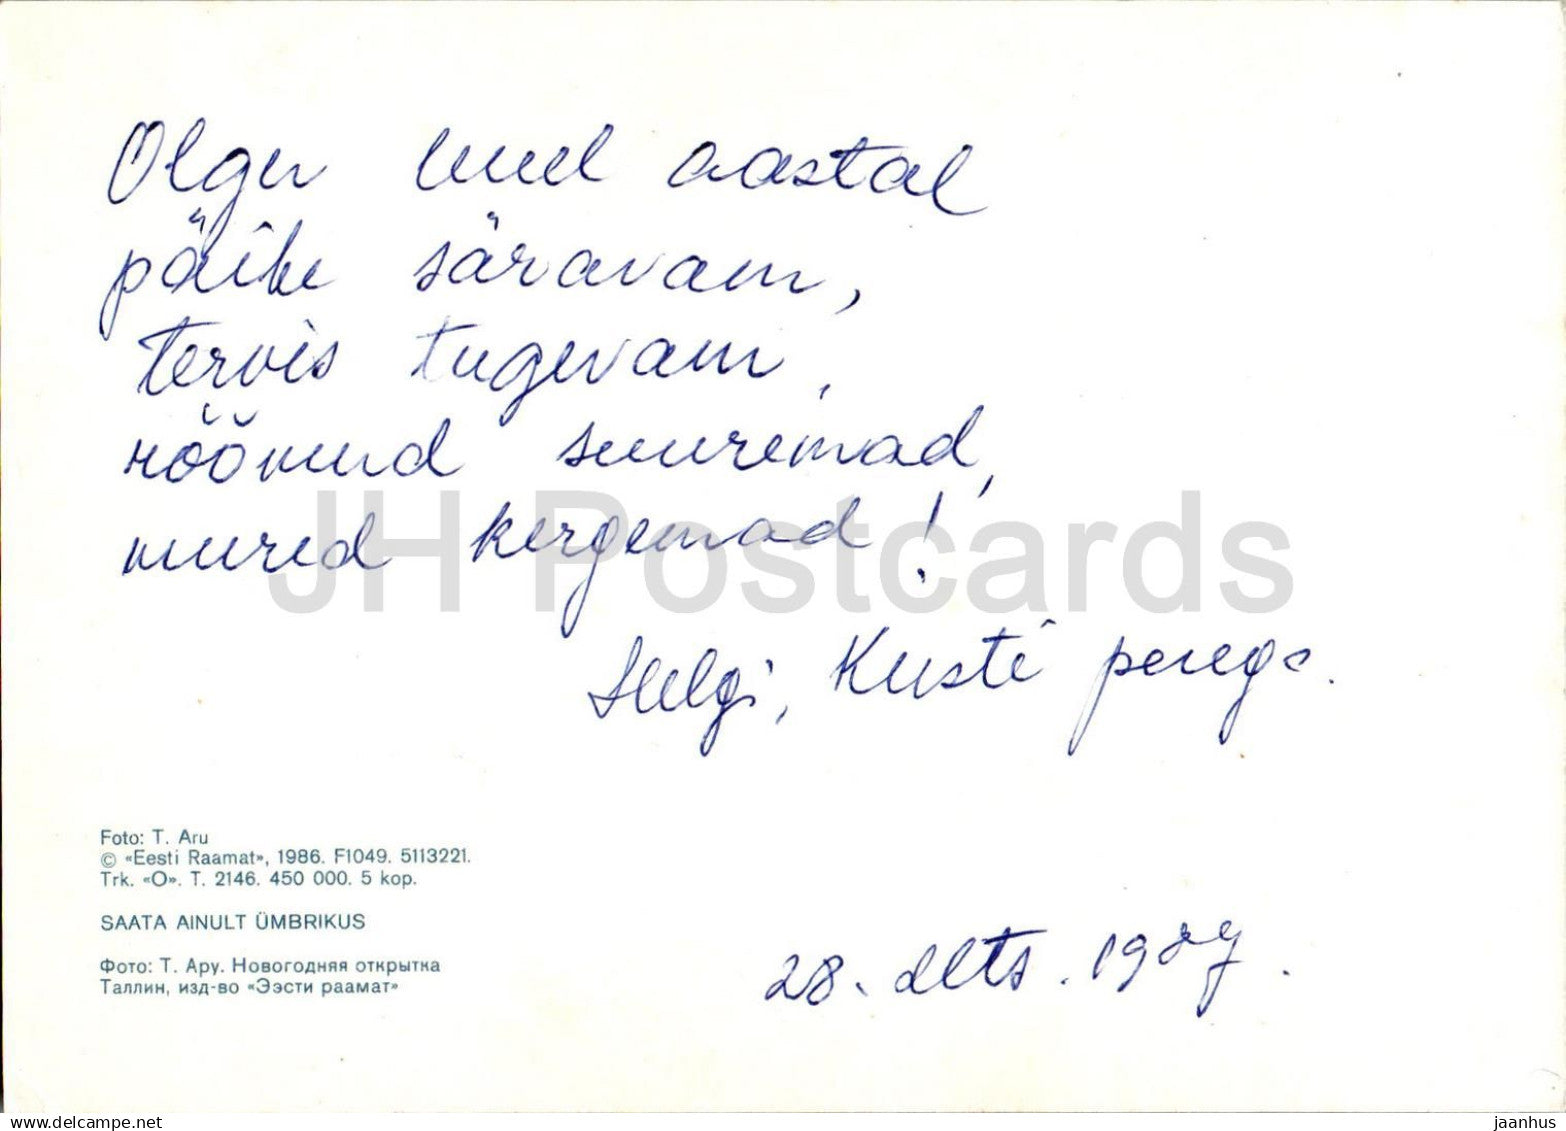 Olgu uuel aastal
päike säravam,
tervis tugevam,
rõõmud suuremad,
mured kergemad!
Helgi, Kusti perega.
JH Postcards
Foto: T. Aru
© «Eesti Raamat», 1986. F1049. 5113221.
Trk. «O». T. 2146. 450 000. 5 kop.
SAATA AINULT ÜMBRIKUS
Фото: Т. Ару. Новогодняя открытка
Таллин, изд-во «Ээсти раамат»
28. dets.
www.delcampe.net
jaanhus